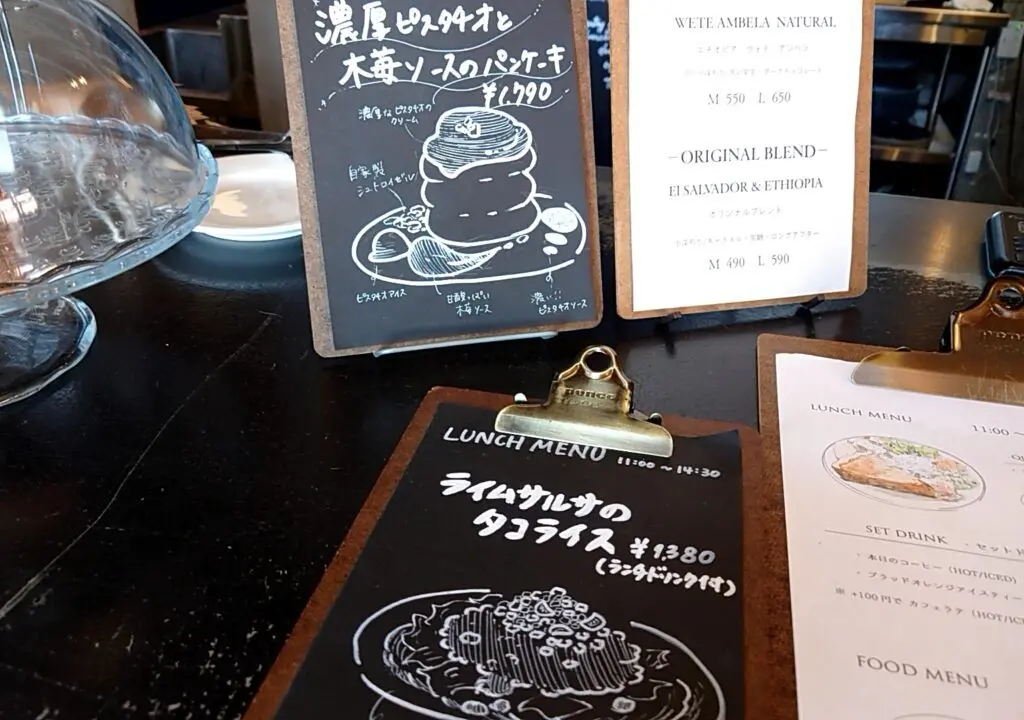 濃厚ピスタチオと
木苺ソースのパンケーキ
¥1,790
濃厚なピスタチオの
クリーム
自家製
シュトロイゼル
ピスタチオアイス
甘酸っぱい
木苺ソース
濃い!!
ピスタチオソース
WETE AMBELA NATURAL
M 550 L 650
-ORIGINAL BLEND-
El SALVADOR & ETHIOPIA
オリジナルブレンド
M 490 L 590
LUNCH MENU 11:00~14:30
ライムサルサの
タコライス ¥1,380
(ランチドリンク付)
LUNCH MENU 11:00~
SET DRINK ・セットド
・本日のコーヒー (HOT/ICED)
・ブラッドオレンジアイスティー
※ +100円で カフェラテ (HOT/ICE
FOOD MENU